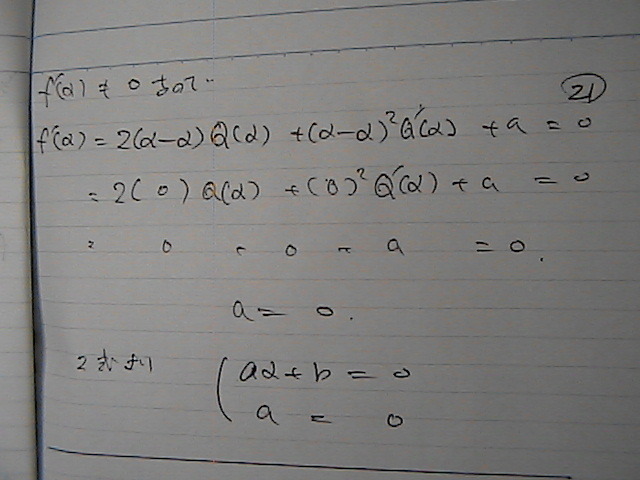 f'(α) ≠ 0 なので..
㉑
f'(α) = 2(α-α)Q(α) + (α-α)²Q'(α) + a = 0
= 2(0)Q(α) + (0)²Q'(α) + a = 0
= 0 + 0 + a = 0.
a = 0.
2式より { aα + b = 0
a = 0